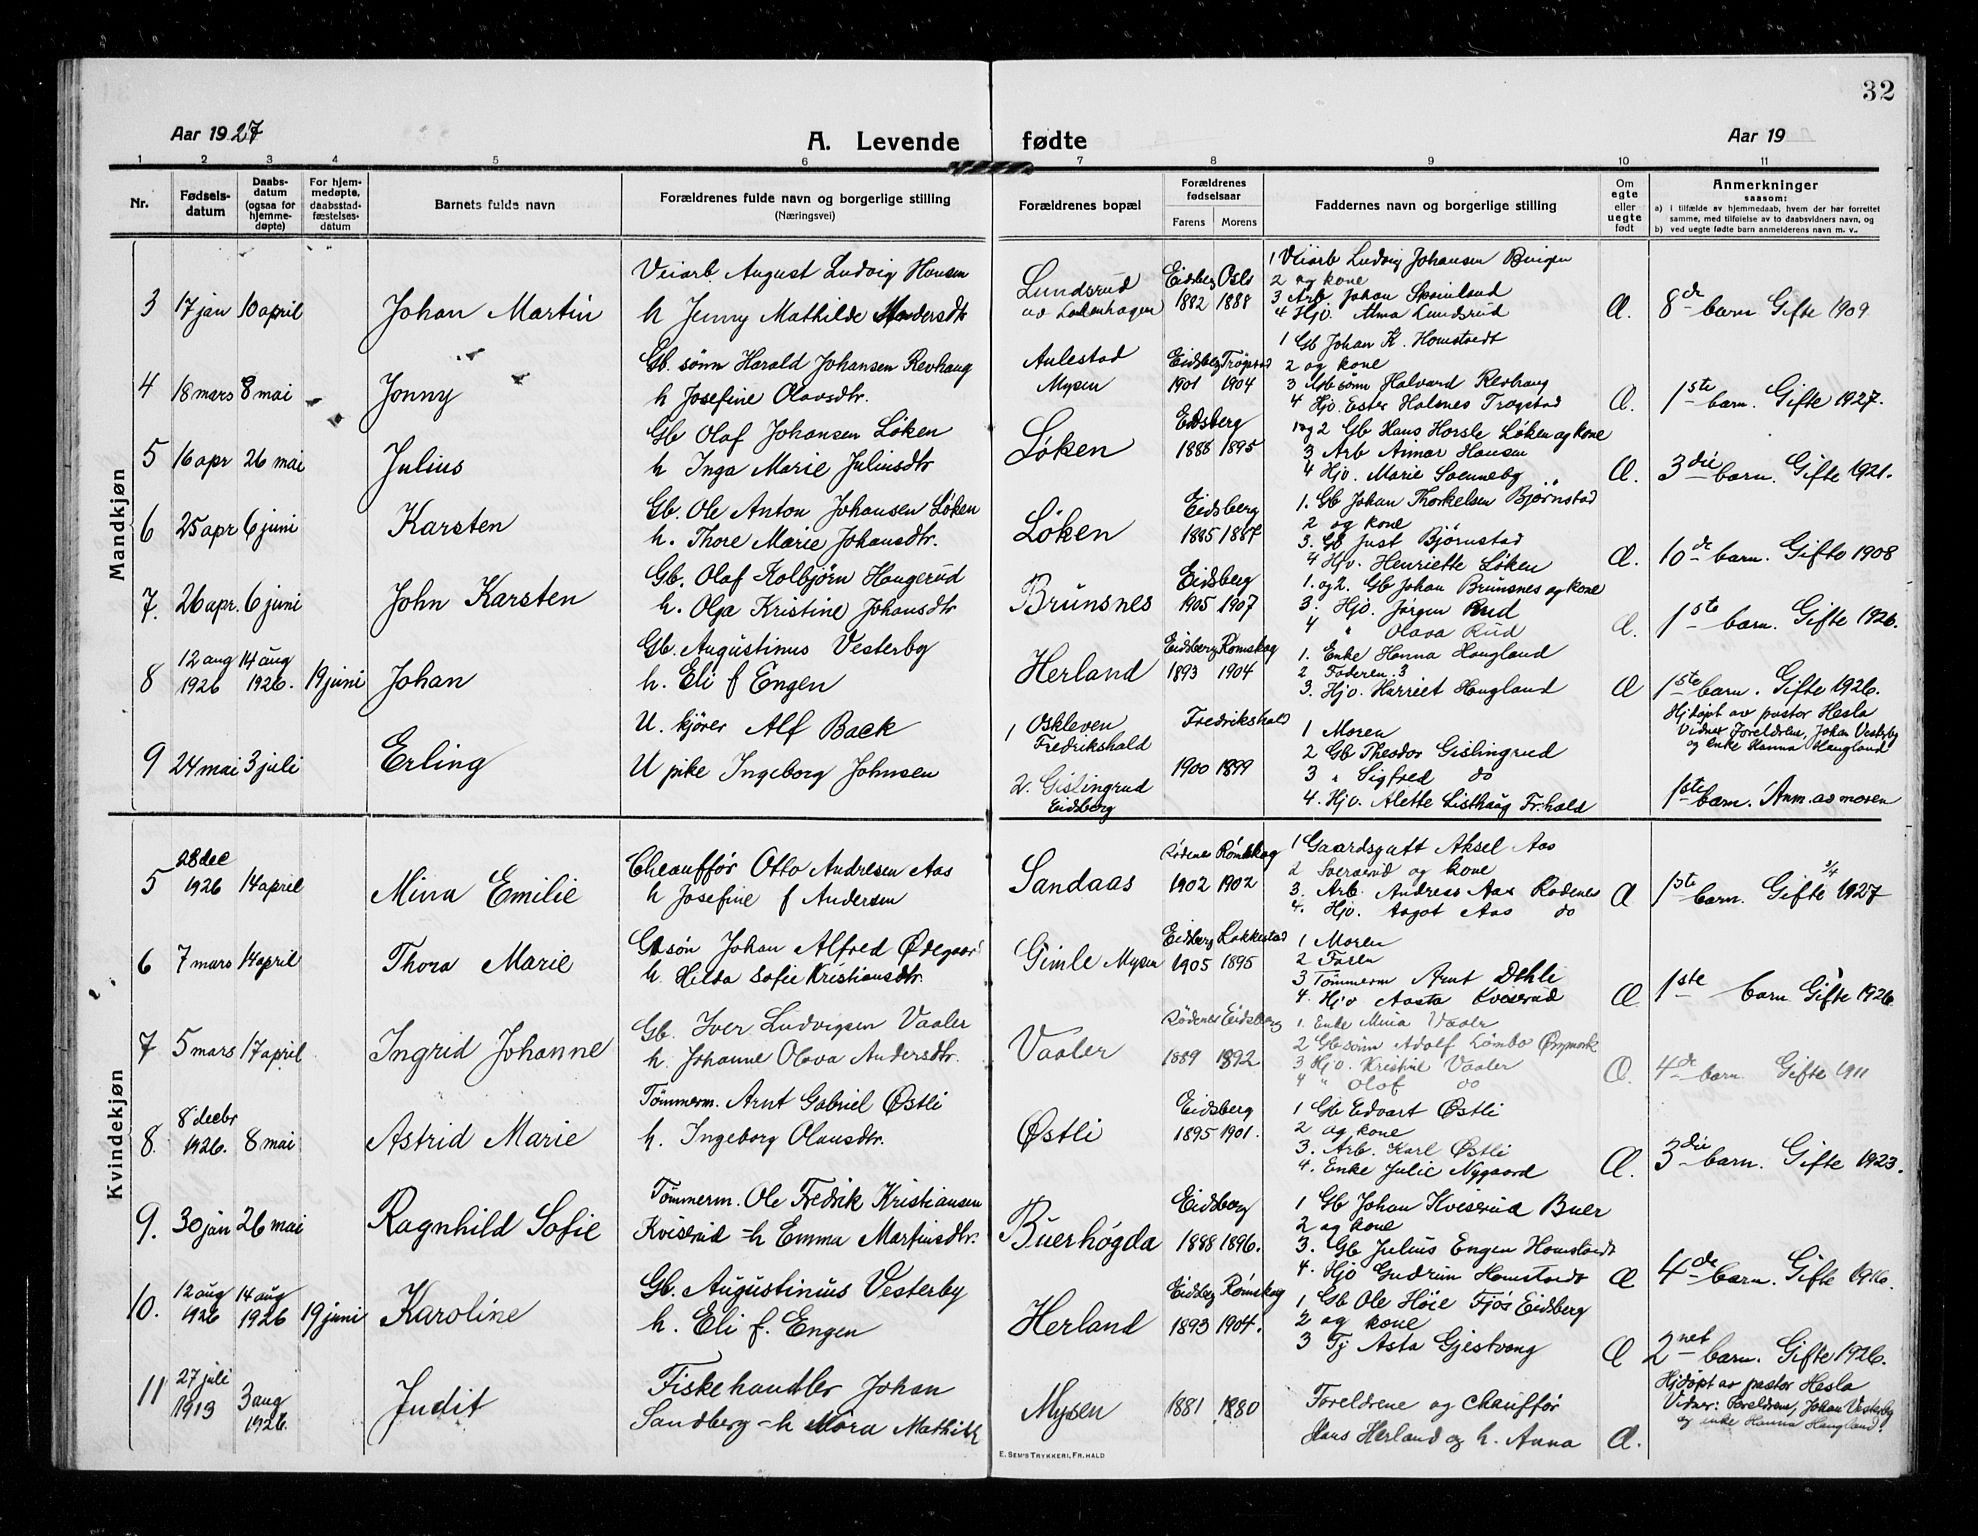 32
Aar 1927
A. Levende fødte
Aar 19
1 2 3 4 5 6 7 8 9 10 11
Nr.
Fødsels-
datum
Daabs-
datum
(ogsaa for
hjemme-
døpte)
For hjem-
medøpte,
daabsstad-
fæstelses-
datum
Barnets fulde navn
Forældrenes fulde navn og borgerlige stilling
(Næringsvei)
Forældrenes bopæl
Forældrenes
fødselsaar
Farens Morens
Faddernes navn og borgerlige stilling
Om
egte
eller
uegte
født
Anmerkninger
saasom:
a) i tilfælde av hjemmedaab, hvem der har forrettet
samme, med tilføielse av to daabsvidners navn, og
b) ved uegte fødte barn anmelderens navn m. v..
Mandkjøn
3 17 jan 10 april Johan Martin
Veiarb August Ludvig Hansen
h Jenny Mathilde
Lundsrud
Eidsberg Oslo
1882 1888
1 Veiarb Ludvig Johansen Bingen
2 og kone
3 Arb. Johan
4 Hjv. Alma Lundsrud
Æ. 8de barn Gifte 1909
4 18 mars 8 mai Jonny
Gb. sønn Harald Johansen Revhaug
h Josefine Olavsdtr.
Aulestad
Mysen
Eidsberg Trøgstad
1901 1904
1 Gb Johan K. Homstvedt
2 og kone
3 Gb sønn Halvard Revhaug
4 Hjv. Ester Holsnes Trøgstad
Æ. 1ste barn. Gifte 1927.
5 16 apr 26 mai Julius
Gb Olaf Johansen Løken
h Inga Marie Juliusdtr
Løken
Eidsberg
1886 1895
1 og 2 Gb Hans Horsle Løken og kone
3 Arb Annar Hansen
4 Hjv. Marie
Æ. 3die barn. Gifte 1921.
6 25 apr 6 juni Karsten
Gb. Ole Anton Johansen Løken
h. Thore Marie Johansdtr.
Løken
Eidsberg
1885 1887
1. Gb Johan Thorkelsen Bjørnstad
2 og kone
3. Gb Just Bjørnstad
4 Hjv. Henriette Løken
Æ. 10de barn. Gifte 1908
7. 26 apr. 6 juni John Karsten
Gb. Olaf Kolbjørn Haugerud
h. Olga Kristine Johansdtr
Brunsnes
Eidsberg
1905 1907
1. og 2. Gb Johan Brunsnes og kone
3. Hjv. Jørgen Rud
4 " Olava Rud
Æ. 1ste barn. Gifte 1926.
8 12 aug 1926 14 aug 1926. 19 juni Johan
Gb. Augustinus Vesterby
h. Eli f Engen
Herland
Eidsberg Rømskog
1893 1904
1. Enke Hanna Haugland
2 Faderen. 3
3. Hjv. Harriet Haugland
Æ 1ste barn. Gifte 1926.
Hjdøpt av pastor Hesla
Vidner Foreldrene, Johan Vesterby
og enke Hanna Haugland
9 24 mai 3 juli Erling
U. kjører Alf Back
U pike Ingeborg Johnsen
1 Oskleven
Fredrikshald
2. Gislingrud
Eidsberg
Fredrikshald
1900 1899
1 Moren
2 Gb Theodor Gislingrud
3 " Sigfred do
4. Hjv. Alette Listhaug Fr.hald
1ste barn. Anm. av moren
Kvindekjøn
5 28 dec 1926 14 april Mina Emilie
Cheauffør Otto Andresen Aas
h Josefine f Andersen
Sandaas
Rødenes Rømskog
1902 1902
1 Gaardsgutt Aksel Aas
2 og kone
3. Arb. Andreas Aas Rødenes
4. Hjv. Aagot Aas do
Æ 1ste barn. Gifte 3/4 1927
6 7 mars 14 april Thora Marie
Gb søn Johan Alfred Ødegaard
h. Hilda Sofie Kristiansdtr.
Gimle Mysen
Eidsberg Lokkestad
1905 1895
1 Moren
2 Faren
3 Tømmerm Arnt Dehli
4. Hjv Aasta Kviserud
Æ 1ste barn Gifte 1926.
7 5 mars 17 april Ingrid Johanne
Gb. Iver Ludvigsen Vaaler
h. Johanne Olava Andersdtr.
Vaaler
Rødenes Eidsberg
1889 1892
1. Enke Mina Vaaler
2 Gb sønn Adolf Lømbo Ørymark
3 Hjv. Kristine Vaaler
4 " Olaf do
Æ. 4de barn Gifte 1911
8. 8 decbr 1926. 8 mai Astrid Marie
Tømmerm. Arnt Gabriel Østli
h. Ingeborg Olausdtr.
Østli
Eidsberg
1895 1901.
1 Gb Edvart Østli
2 og kone
3. Arb. Karl Østli
4. Enke Julie Nygaard
Æ. 3die barn. Gifte 1923.
9. 30 jan 26 mai Ragnhild Sofie
Tømmerm. Ole Fredrik Kristiansen
Kviserud - h Emma Martinsdtr.
Buerhøgda
Eidsberg
1888 1896.
1 Gb Johan Kviserud Buer
2 og kone
3. Gb Julius Engen Homstvedt
4. Hjv Gudrun Homstvedt
Æ 4de barn. Gifte 1916.
10. 12 aug 1926 14 aug 1926 19 juni Karoline
Gb. Augustinus Vesterby
h. Eli f. Engen
Herland
Eidsberg Rømskog
1893 1904.
1 Gb Ole Høie Fjøs Eidsberg
2 og kone
3 Tj Asta Gjestvang
Æ 2net barn. Gifte 1926.
Hjdøpt av pastor Hesla
Vidner: Foreldrene, Johan Vesterby
og enke Hanna Haugland.
11 27 juli 1913 3 aug 1926. Judit
Fiskehandler Johan
Sandberg - h Mora Mathilde
Mysen
1881 1880
Foreldrene og chauffør
Hans Herland og h. Anna
Æ.
E. SEM'S TRYKKERI, FR.HALD